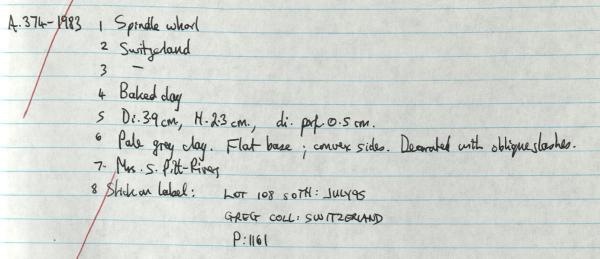 A.374-1983 1 Spindle whorl
2 Switzerland
3 —
4 Baked clay
5 Di. 3.9 cm, H. 2.3 cm., di. perf. 0.5 cm.
6 Pale grey clay. Flat base; convex sides. Decorated with oblique slashes.
7. Mrs. S. Pitt-Rivers
8 Stick on label: LOT 108 SOTH: JULY 95
GREG COLL: SWITZERLAND
P: 1161